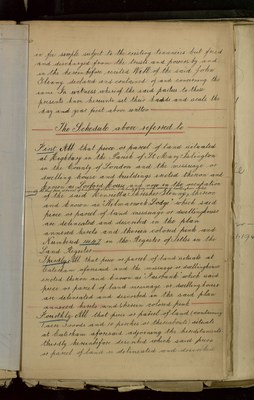 in fee simple subject to the existing tenancies but freed
and discharged from the trusts and powers by and
in the hereinbefore recited Will of the said John
Fleming declared and contained of and concerning the
same In witness whereof the said parties to these
presents have hereunto set their hands and seals the
day and year first above written
The Schedule above referred to
First All that piece or parcel of land situated
at Highbury in the Parish of St Mary Islington
in the County of London and the messuage or
dwelling house and buildings erected thereon and
known as
and now in the occupation
of the said
and known as
Lodge which said
piece or parcel of land messuage or dwellinghouse
are delineated and described in the plan
annexed hereto and thereon colored pink and
Numbered in the Register of Titles in the
Land Registry
Thirdly All that piece or parcel of land situate at
Caterham aforesaid and the messuage or dwellinghouse
erected thereon and known as
which said
piece or parcel of land messuage or dwellinghouse
are delineated and described in the said plan
annexed hereto and thereon colored pink
Fourthly All that piece or parcel of land containing
situate
at Caterham aforesaid adjoining the hereditaments
thirdly hereinbefore described which said piece
or parcel of land is delineated and described